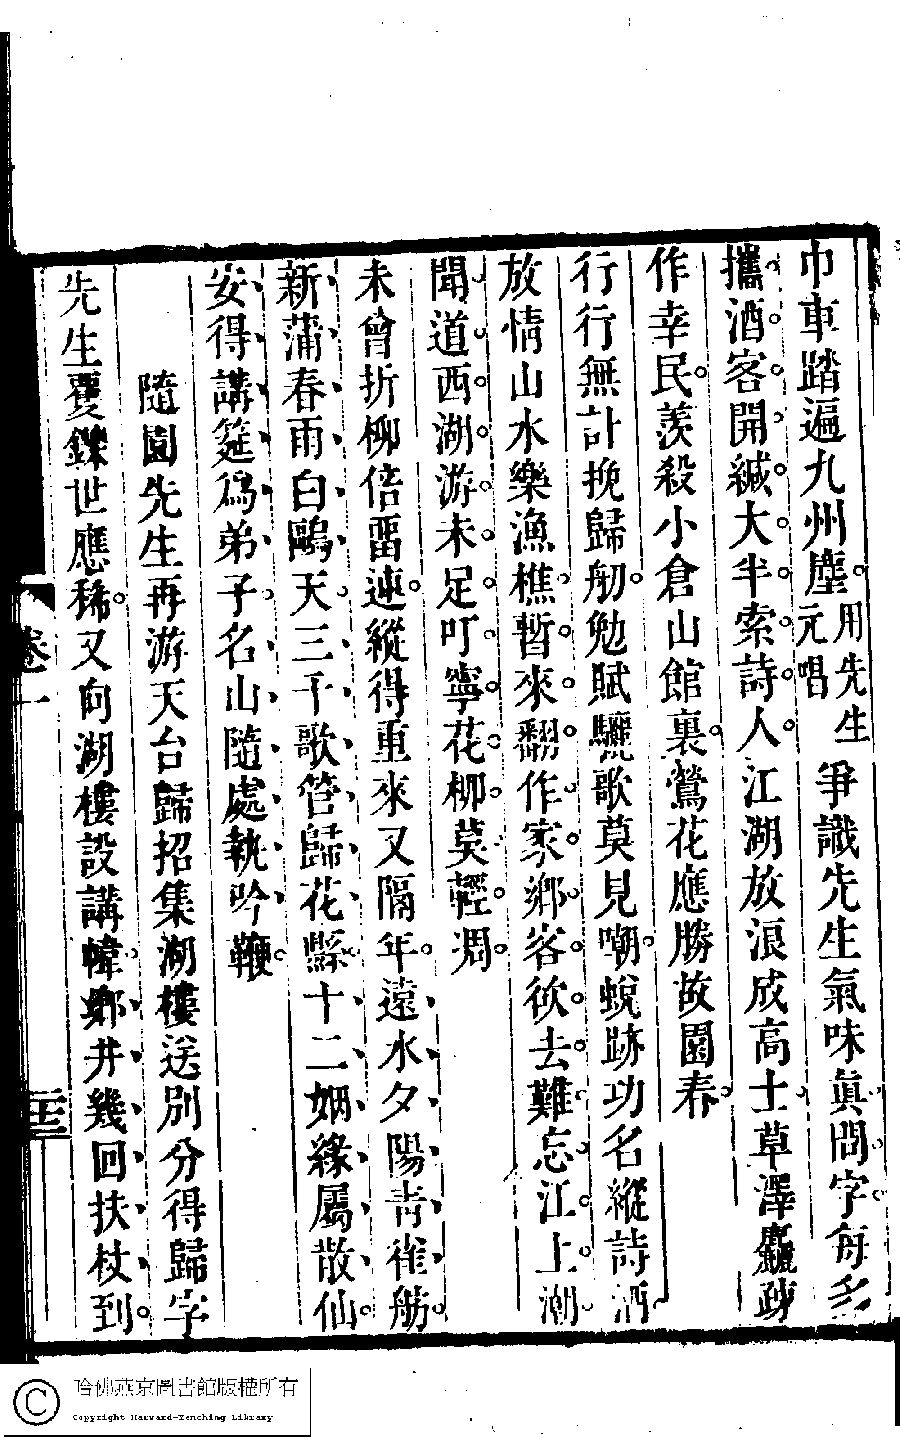 巾車踏遍九州塵用先生元唱爭識先生氣味真問字每多
攜酒客開緘大半索詩人江湖放浪成高士草澤麤疎
作幸民羨殺小倉山館裏鶯花應勝故園春
行行無計挽歸舠勉賦驪歌莫見嘲蛻跡功名縱詩酒
放情山水樂漁樵暫來翻作家鄉客欲去難忘江上潮
聞道西湖游未足叮寧花柳莫輕凋
未曾折柳倍畱連縱得重來又隔年遠水夕陽青雀舫
新蒲春雨白鷗天三千歌管歸花縣十二姻緣屬散仙
安得講筵爲弟子名山隨處執吟鞭
隨園先生再游天台歸招集湖樓送別分得歸字
先生矍鑠世應稀又向湖樓設講幃鄉井幾回扶杖到
卷一
哈佛燕京圖書館版權所有
Copyright Harvard-Yenching Library